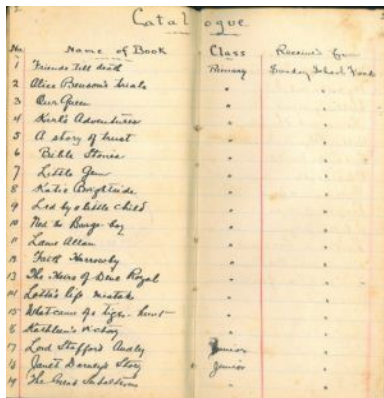 Catalogue
No Name of Book Class Received from
1 Friends till death Primary Sunday School Fund
2 Alice Benson's trials "
3 Our Queen "
4 Kurt's Adventures "
5 A story of trust "
6 Bible Stories "
7 Little Gem "
8 Katie Brightside "
9 Led by a little child "
10 Ned the Barge boy "
11 Lame Allan "
12 Faith Harrowby "
13 The Heirs of Dene Royal "
14 Lottie's life mistake "
15 What came of a tiger hunt "
Kathleen's victory "
17 Lord Stafford Junior "
Janet Story Junior "
19 The Great "